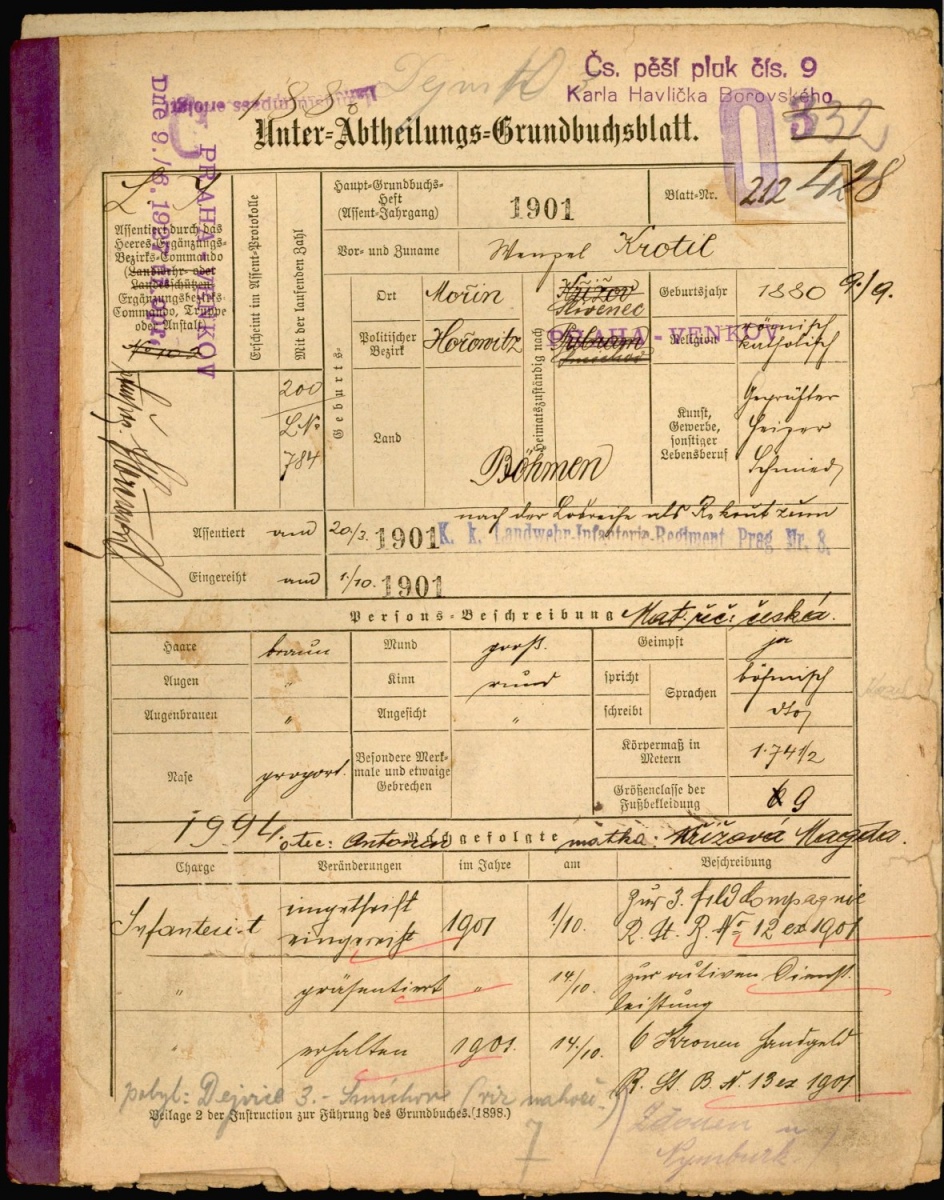 Čs. pěší pluk čís. 9
Karla Havlíčka Borovského
Unter-Abtheilungs-Grundbuchsblatt.
PRAHA-VENKOV
Assentiert durch das Heeres-Ergänzungs-Bezirks-Commando (Landwehr- oder Landesschützen Ergänzungsbezirks-Commando, Truppe oder Anstalt)
Erscheint im Assent-Protokolle
Mit der laufenden Zahl
200
LNo
784
Haupt-Grundbuchs-Heft (Assent-Jahrgang)
1901
Blatt-Nr.
212 428
Vor- und Zuname
Wenzel Krotil
Geburts-
Ort
Mořin
Politischer Bezirk
Hořowitz
Land
Böhmen
Heimatszuständig nach
Slivenec
PRAHA-VENKOV
Geburtsjahr
1880 9./9.
Religion
römisch katholisch
Kunst, Gewerbe, sonstiger Lebensberuf
Geprüfter
Heizer
Schmied
Assentiert
am 20/3. 1901
nach der Losreihe als Rekrut zum
K. k. Landwehr-Infanterie-Regiment Prag Nr. 8.
Eingereiht
am 1/10. 1901
Persons-Beschreibung Mat: řeč: česká.
Haare
braun
Mund
groß.
Geimpft
ja
Augen
"
Kinn
rund
spricht
Sprachen
böhmisch
Augenbrauen
"
Angesicht
"
schreibt
dto
Nase
proport.
Besondere Merkmale und etwaige Gebrechen
Körpermaß in Metern
1.74 1/2
Größenclasse der Fußbekleidung
9
otec: Antonín Nachgefolgte matka: Křížová Magda.
Charge
Veränderungen
im Jahre
am
Beschreibung
Infanterist
eingetheilt
eingereiht
1901
1/10.
Zur 3. Feldkompagnie
R. St. B. No 12 ex 1901
"
präsentiert
"
14/10.
zur aktiven Dienst-
leistung
erhalten
1901.
14./10.
6 Kronen Handgeld
R. St. B. N. 13 ex 1901
pobyt: Dejvice 3. - Smíchov (viz nahoře)
Beilage 2 der Instruction zur Führung des Grundbuches. (1898.)
7
Nymburk